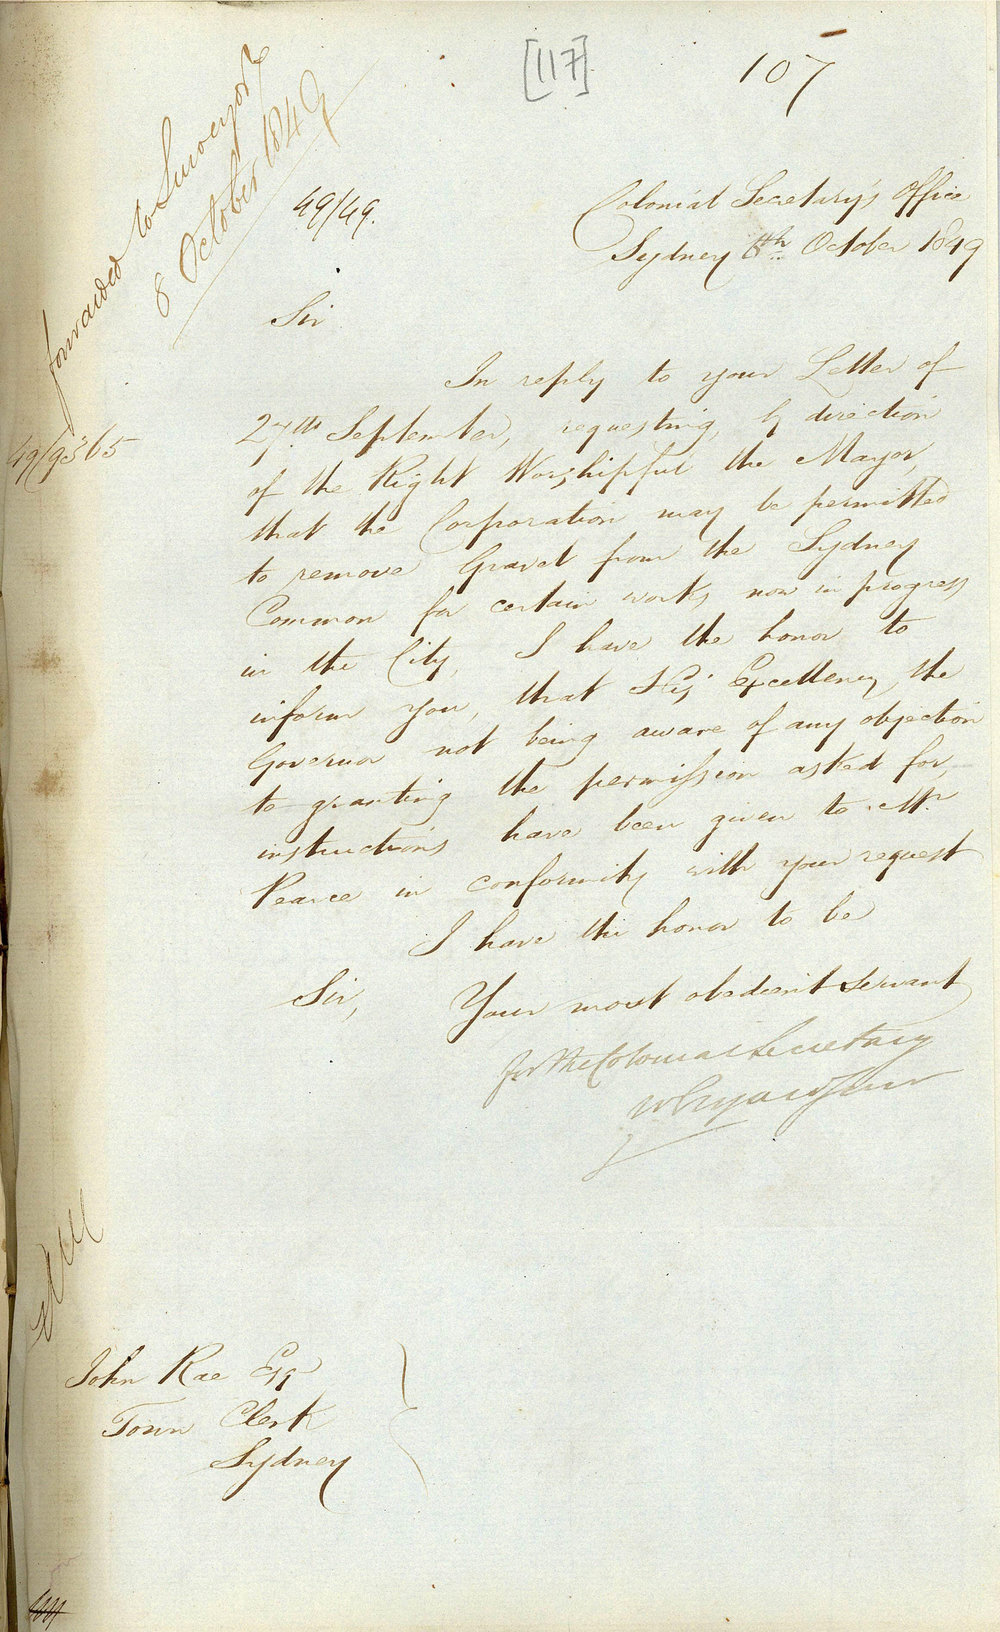 [117]
107
forwarded to Surveyor
8 October 1849
49/49.
Colonial Secretary's Office
Sydney 8th October 1849
Sir
In reply to your Letter of
27th September, requesting, by direction
49/9565
of the Right Worshipful the Mayor,
that the Corporation may be permitted
to remove Gravel from the Sydney
Common for certain works now in progress
in the City, I have the honor to
inform you, that His Excellency the
Governor not being aware of any objection
to granting the permission asked for,
instructions have been given to Mr.
Pearce in conformity with your request
I have the honor to be
Sir,
Your most obedient Servant
for the Colonial Secretary
John Rae Esq
Town Clerk
Sydney